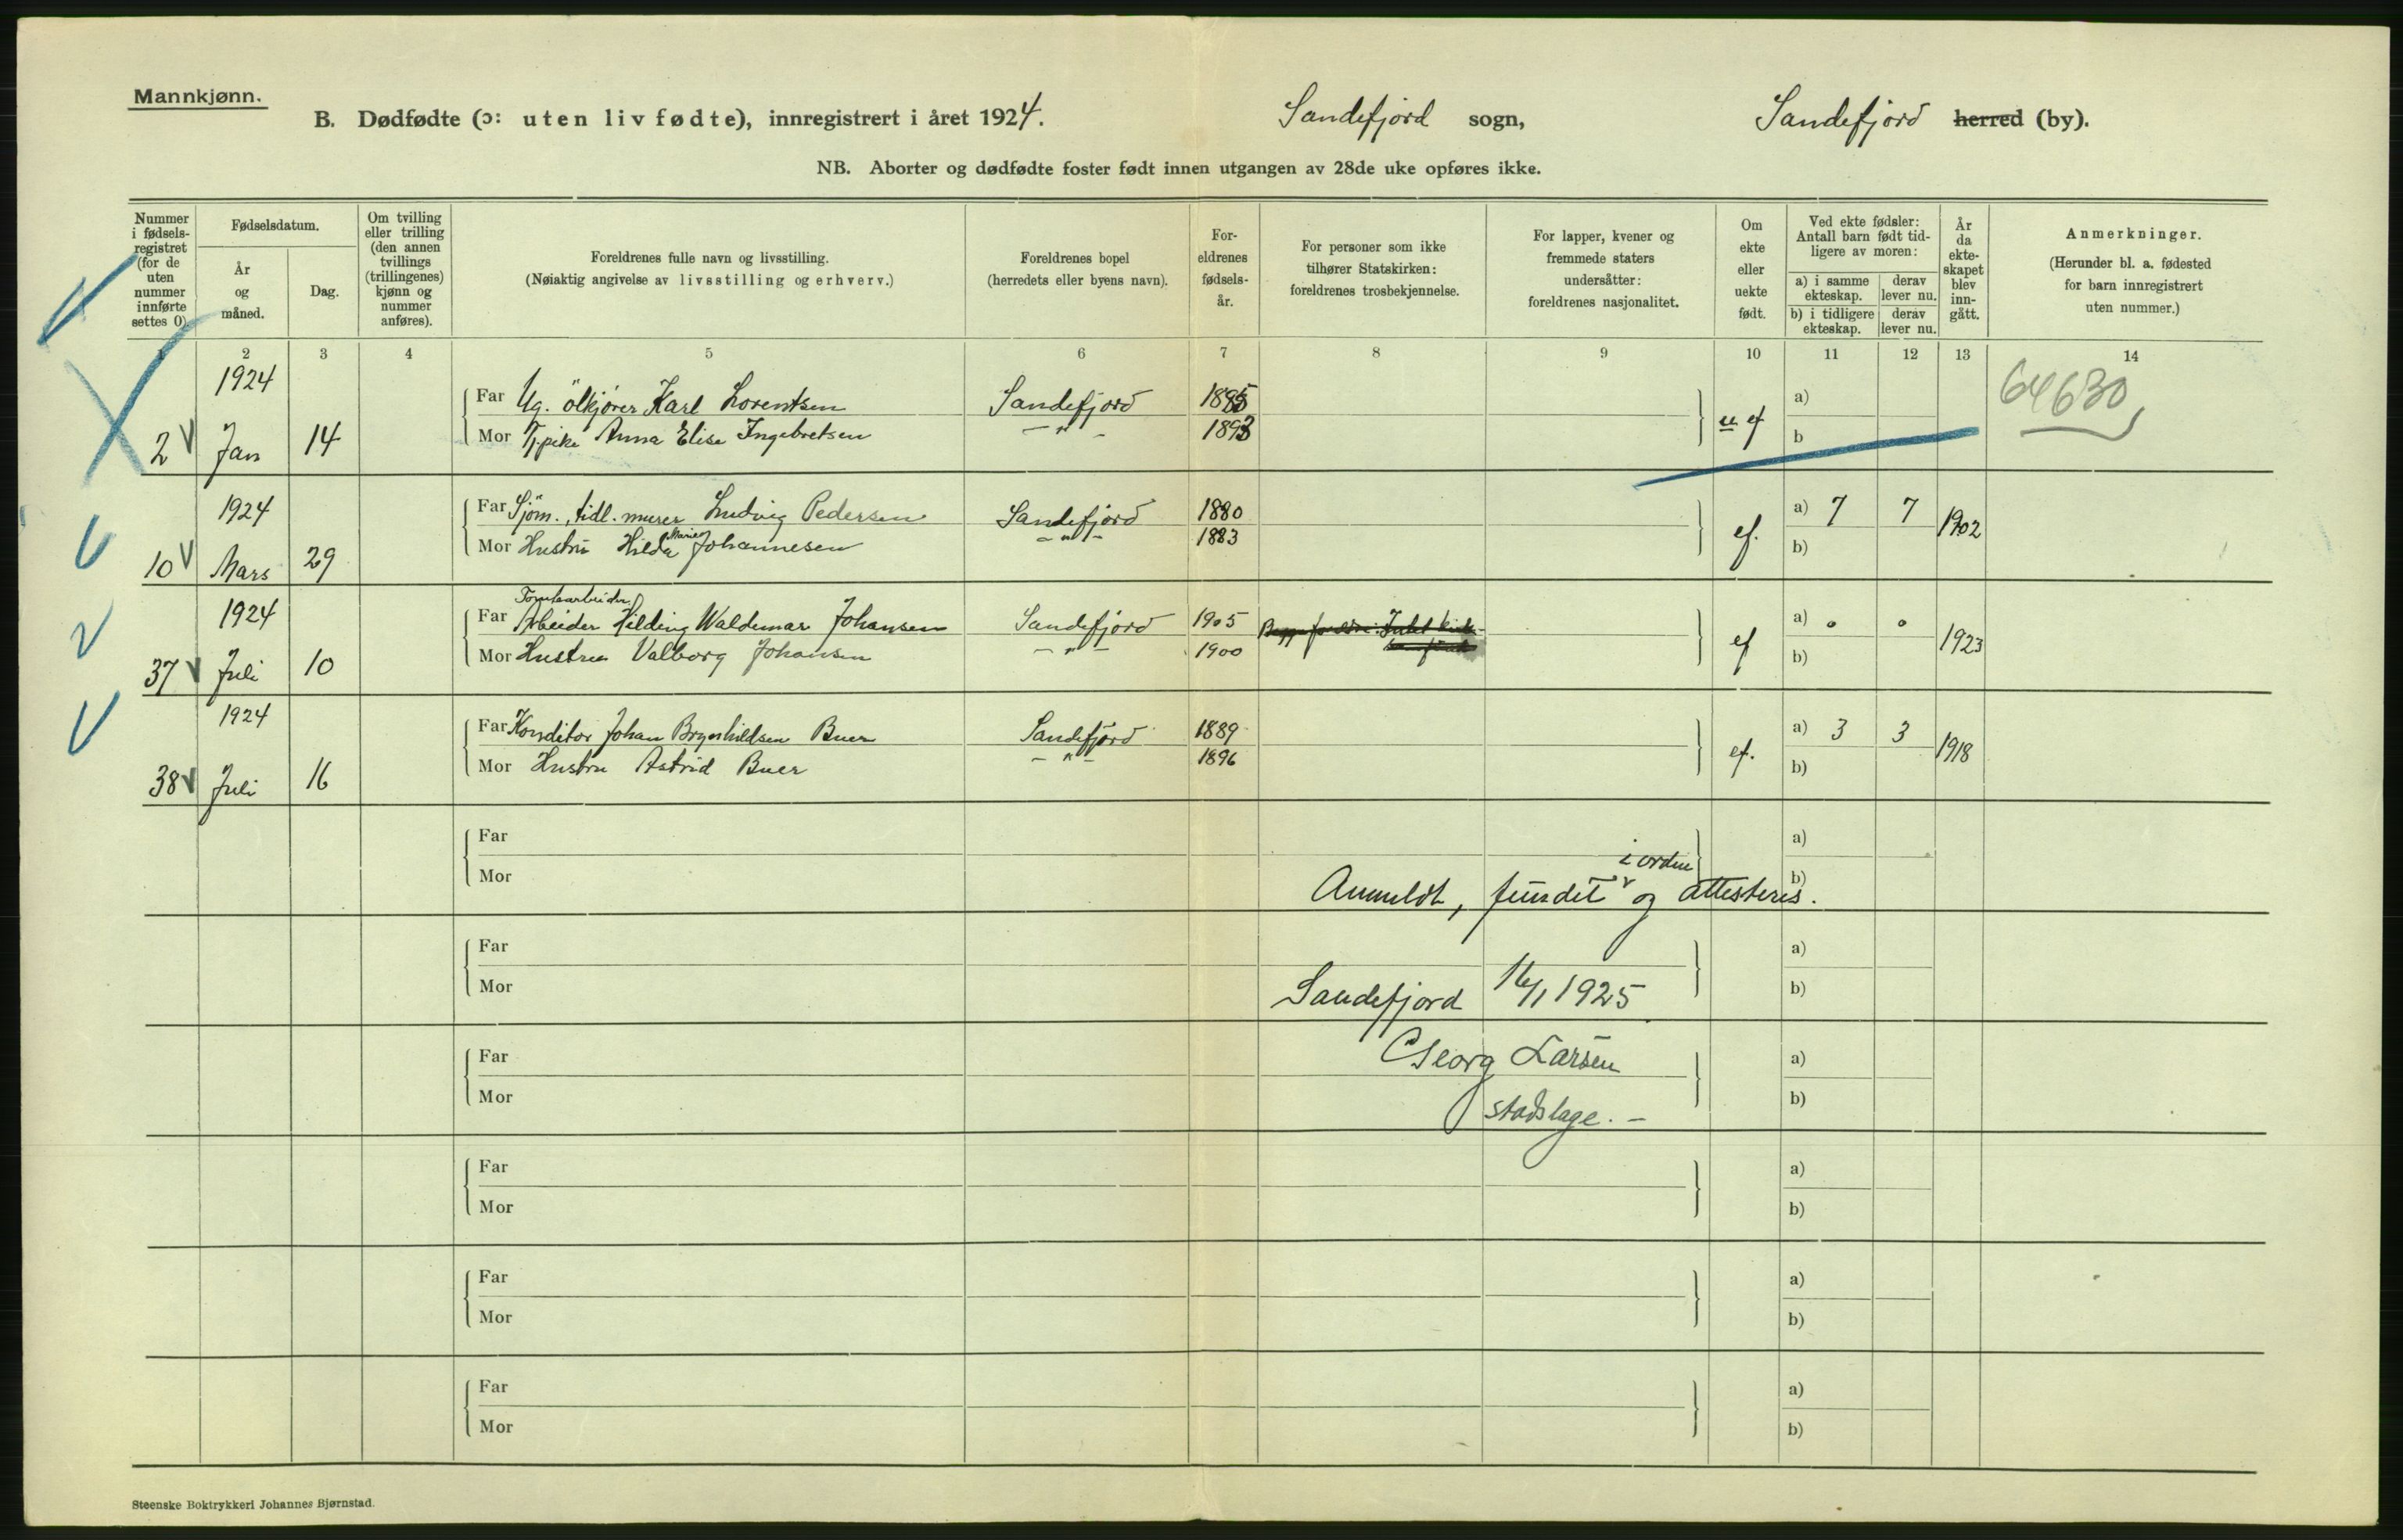 Mannkjønn.
B. Dødfødte (ɔ: uten liv fødte), innregistrert i året 1924. Sandefjord sogn, Sandefjord herred (by).
NB. Aborter og dødfødte foster født innen utgangen av 28de uke opføres ikke.
Nummer i fødselsregistret (for de uten nummer innførte settes 0).
Fødselsdatum.
År og måned.
Dag.
Om tvilling eller trilling (den annen tvillings (trillingenes) kjønn og nummer anføres).
Foreldrenes fulle navn og livsstilling.
(Nøiaktig angivelse av livsstilling og erhverv.)
Foreldrenes bopel
(herredets eller byens navn).
Foreldrenes fødselsår.
For personer som ikke tilhører Statskirken: foreldrenes trosbekjennelse.
For lapper, kvener og fremmede staters undersåtter: foreldrenes nasjonalitet.
Om ekte eller uekte født.
Ved ekte fødsler: Antall barn født tidligere av moren:
a) i samme ekteskap. derav lever nu.
b) i tidligere ekteskap. derav lever nu.
År da ekteskapet blev inngått.
Anmerkninger.
(Herunder bl. a. fødested for barn innregistrert uten nummer.)
1 2 3 4 5 6 7 8 9 10 11 12 13 14
1924 64630
Far Ug. ölkjörer Karl Lorentsen Sandefjord 1885 a)
2 Jan 14 Mor Tj.pike Anna Elise Ingebretsen — " — 1893 u ef b
1924
Far Sjöm., tidl. murer Ludvig Pedersen Sandefjord 1880 a) 7 7
10 Mars 29 Mor Hustru Hilda Marie Johannesen — " — 1883 ef. b) 1902
1924 Tomtearbeider
Far Arbeider Hilding Waldemar Johansen Sandefjord 1905 a) 0 0
37 Juli 10 Mor Hustru Valborg Johansen — " — 1900 ef b) 1923
1924
Far Konditor Johan Brynhildsen Buer Sandefjord 1889 a) 3 3
38 Juli 16 Mor Hustru Astrid Buer — " — 1896 ef. b) 1918
Far a)
Mor b)
Anmeldt, fundet i orden og attesteres.
Far a)
Mor b)
Sandefjord 16/1 1925
Far a)
Georg Larsen
Mor b)
stadslæge. —
Far a)
Mor b)
Far a)
Mor b)
Far a)
Mor b)
Steenske Boktrykkeri Johannes Bjørnstad.